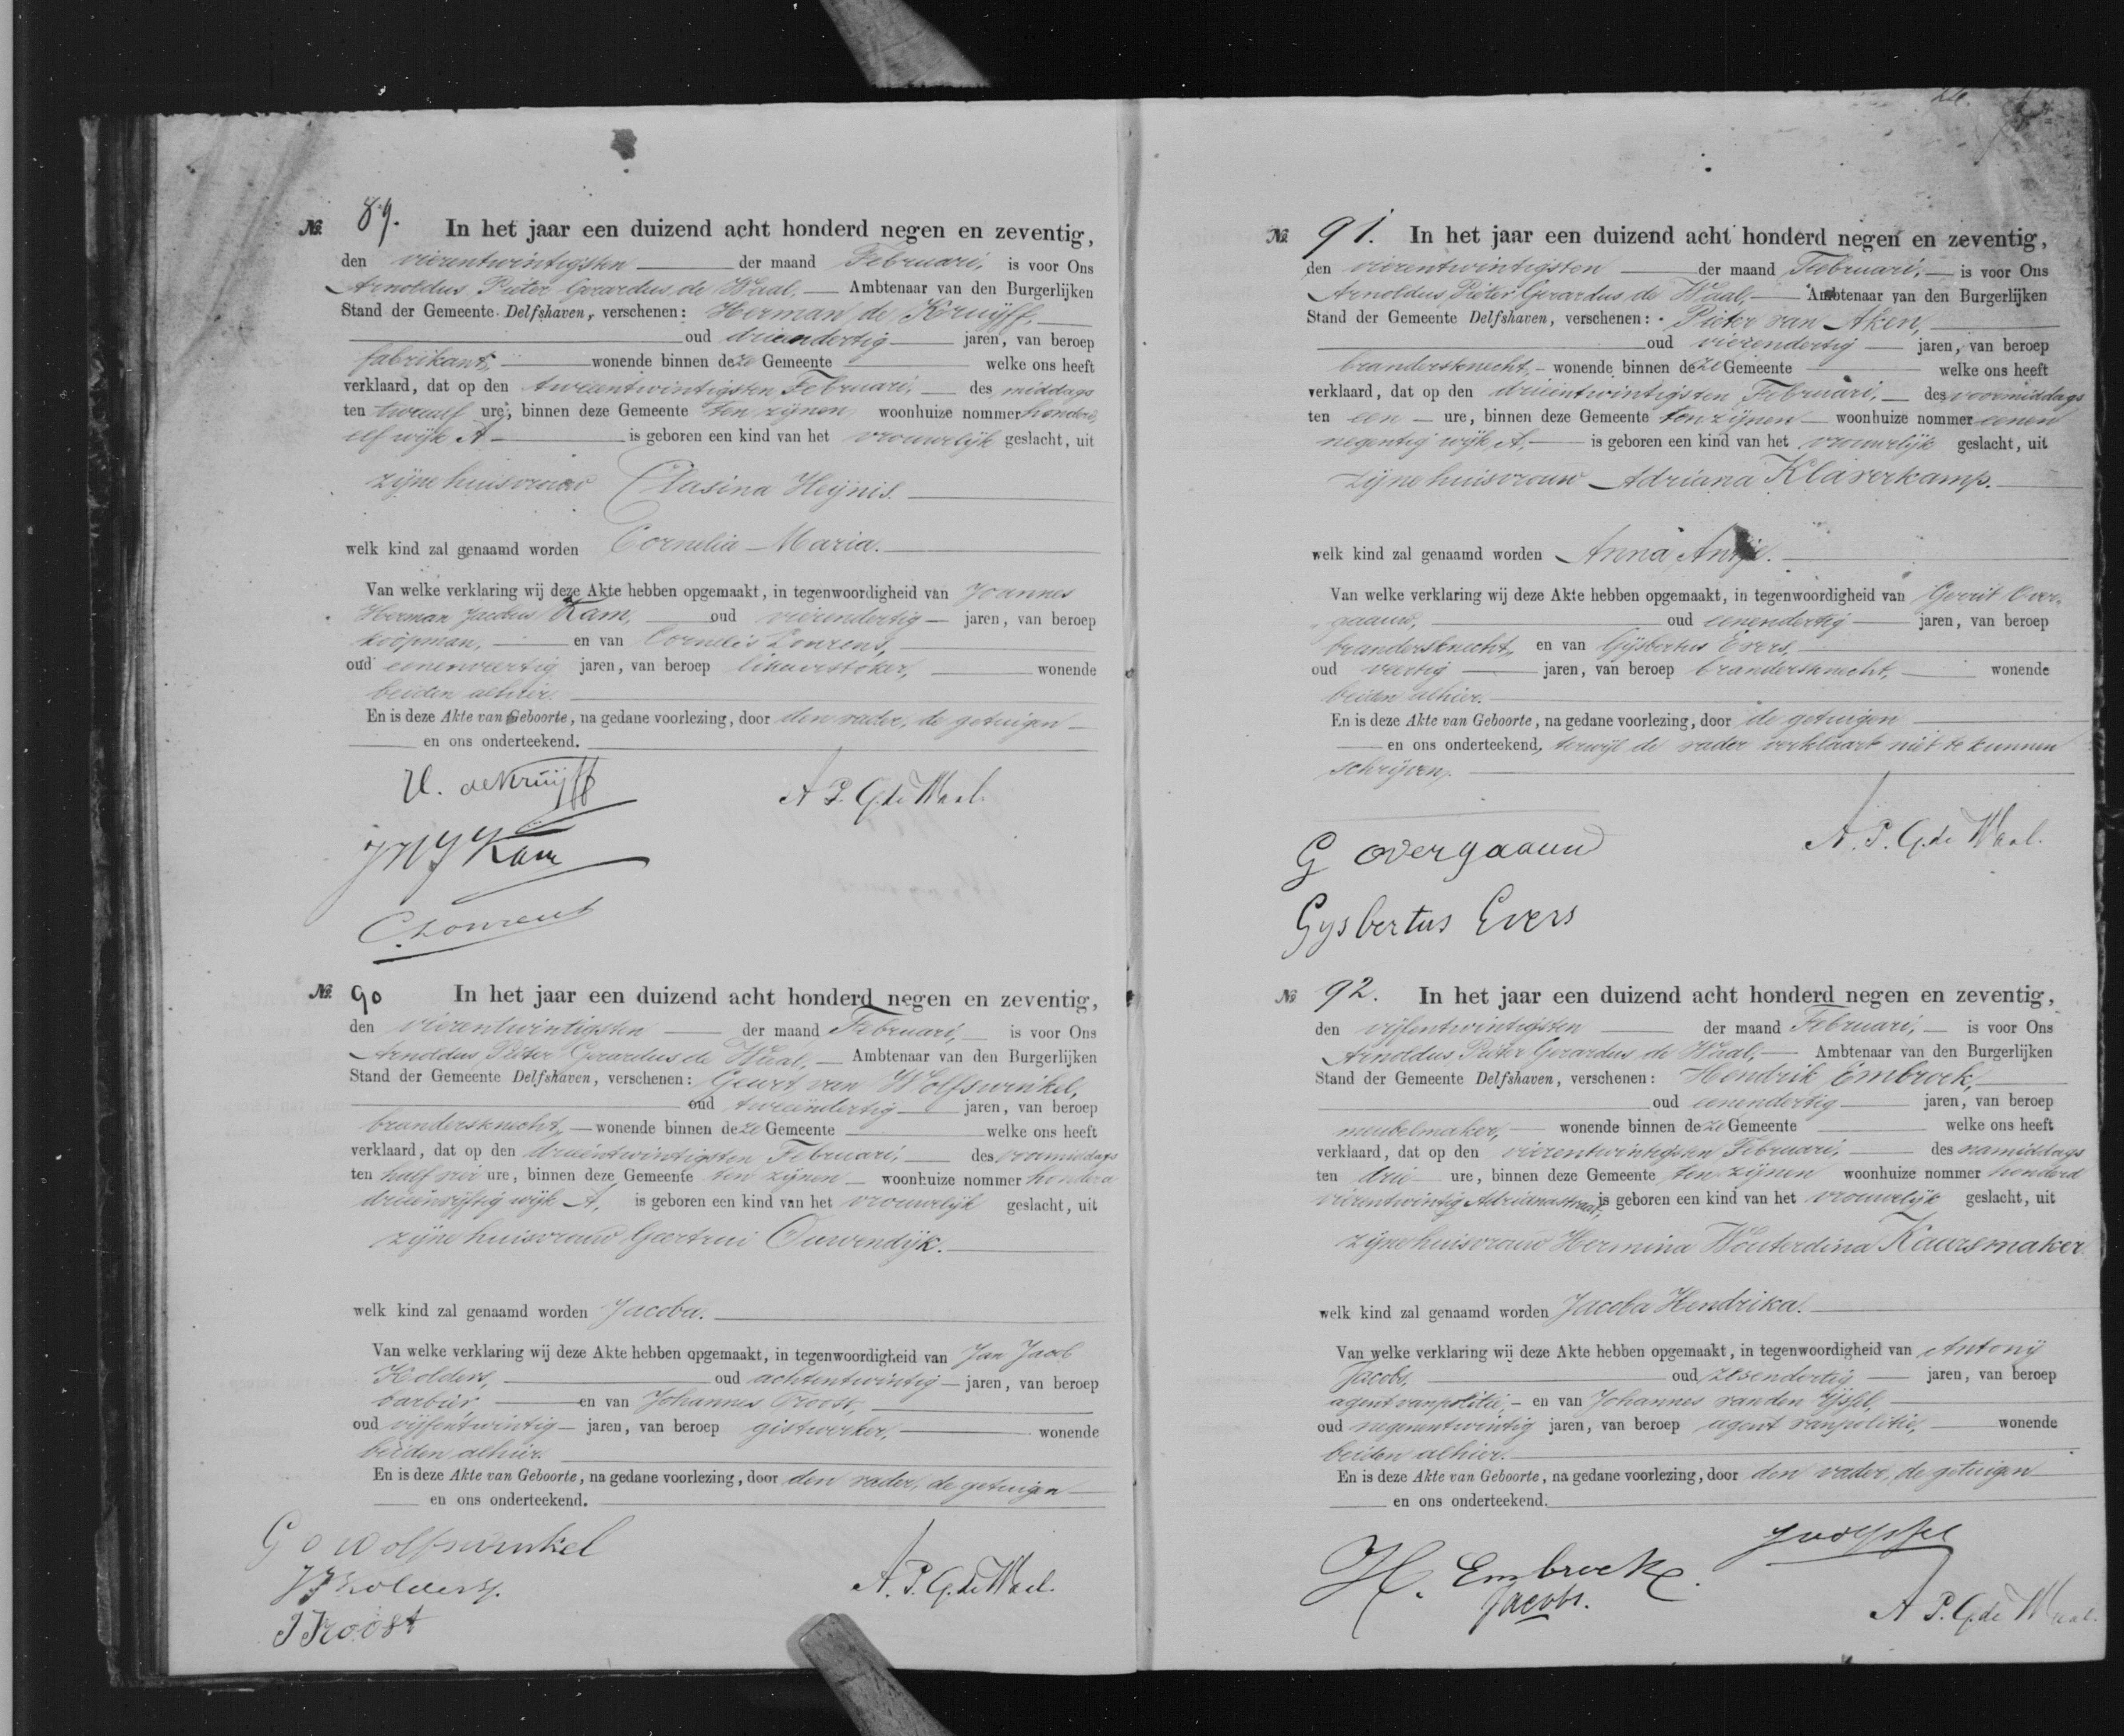 № 89. In het jaar een duizend acht honderd negen en zeventig,
den vierentwintigsten der maand Februari, is voor Ons
Arnoldus Pieter Gerardus de Waal, Ambtenaar van den Burgerlijken
Stand der Gemeente Delfshaven, verschenen: Herman de Kruijff,
oud drieendertig jaren, van beroep
fabrikant, wonende binnen deze Gemeente welke ons heeft
verklaard, dat op den tweeentwintigsten Februari, des middags
ten twaalf ure, binnen deze Gemeente ten zijnen woonhuize nommer honderd
elf wijk A is geboren een kind van het vrouwelijk geslacht, uit
zijne huisvrouw Clasina Heijnis.
welk kind zal genaamd worden Cornelia Maria.
Van welke verklaring wij deze Akte hebben opgemaakt, in tegenwoordigheid van Joannes
Herman Jacobus Kam, oud vierendertig jaren, van beroep
koopman, en van Cornelis Lourens,
oud eenenveertig jaren, van beroep likeurstoker, wonende
beiden alhier.
En is deze Akte van Geboorte, na gedane voorlezing, door den vader, de getuigen
en ons onderteekend.
H. de Kruijff
A. P. G. de Waal.
J H J Kam
C. Lourens
№ 90 In het jaar een duizend acht honderd negen en zeventig,
den vierentwintigsten der maand Februari, is voor Ons
Arnoldus Pieter Gerardus de Waal, Ambtenaar van den Burgerlijken
Stand der Gemeente Delfshaven, verschenen: Geurt van Wolfswinkel,
oud tweeëndertig jaren, van beroep
brandersknecht, wonende binnen deze Gemeente welke ons heeft
verklaard, dat op den drieëntwintigsten Februari, des voormiddags
ten half vier ure, binnen deze Gemeente ten zijnen woonhuize nommer honderd
drieënvijftig wijk A, is geboren een kind van het vrouwelijk geslacht, uit
zijne huisvrouw Geertrui Ouwendijk.
welk kind zal genaamd worden Jacoba.
Van welke verklaring wij deze Akte hebben opgemaakt, in tegenwoordigheid van Jan Jacob
Kolders, oud achtentwintig jaren, van beroep
barbier, en van Johannes Troost,
oud vijfentwintig jaren, van beroep gistwerker, wonende
beiden alhier.
En is deze Akte van Geboorte, na gedane voorlezing, door den vader, de getuigen
en ons onderteekend.
G v Wolfswinkel
JJ Kolders.
A. P. G. de Waal.
J Troost
№ 91. In het jaar een duizend acht honderd negen en zeventig,
den vierentwintigsten der maand Februari, is voor Ons
Arnoldus Pieter Gerardus de Waal, Ambtenaar van den Burgerlijken
Stand der Gemeente Delfshaven, verschenen: Pieter van Aken,
oud vierendertig jaren, van beroep
brandersknecht, wonende binnen deze Gemeente welke ons heeft
verklaard, dat op den drieëntwintigsten Februari, des voormiddags
ten een ure, binnen deze Gemeente ten zijnen woonhuize nommer eenen
negentig wijk A, is geboren een kind van het vrouwelijk geslacht, uit
zijne huisvrouw Adriana Klaverkamp.
welk kind zal genaamd worden Anna Antje.
Van welke verklaring wij deze Akte hebben opgemaakt, in tegenwoordigheid van Gerrit Over-
gaauw, oud eenendertig jaren, van beroep
brandersknecht, en van Gijsbertus Evers,
oud veertig jaren, van beroep brandersknecht, wonende
beiden alhier.
En is deze Akte van Geboorte, na gedane voorlezing, door de getuigen
en ons onderteekend, terwijl de vader verklaart niet te kunnen
schrijven.
G overgaauw
A. P. G. de Waal.
Gysbertus Evers
№ 92. In het jaar een duizend acht honderd negen en zeventig,
den vijfentwintigsten der maand Februari, is voor Ons
Arnoldus Pieter Gerardus de Waal, Ambtenaar van den Burgerlijken
Stand der Gemeente Delfshaven, verschenen: Hendrik Embroek,
oud eenendertig jaren, van beroep
meubelmaker, wonende binnen deze Gemeente welke ons heeft
verklaard, dat op den vierentwintigsten Februari, des namiddags
ten drie ure, binnen deze Gemeente ten zijnen woonhuize nommer honderd
vierentwintig Adrianastraat, is geboren een kind van het vrouwelijk geslacht, uit
zijne huisvrouw Hermina Wouterdina Kaarsmaker
welk kind zal genaamd worden Jacoba Hendrika.
Van welke verklaring wij deze Akte hebben opgemaakt, in tegenwoordigheid van Antonij
Jacobs, oud zesendertig jaren, van beroep
agent van politie, en van Johannes van den IJssel,
oud negenentwintig jaren, van beroep agent van politie, wonende
beiden alhier.
En is deze Akte van Geboorte, na gedane voorlezing, door den vader, de getuigen
en ons onderteekend.
H. Embroek.
Jacobs.
A. P. G. de Waal.